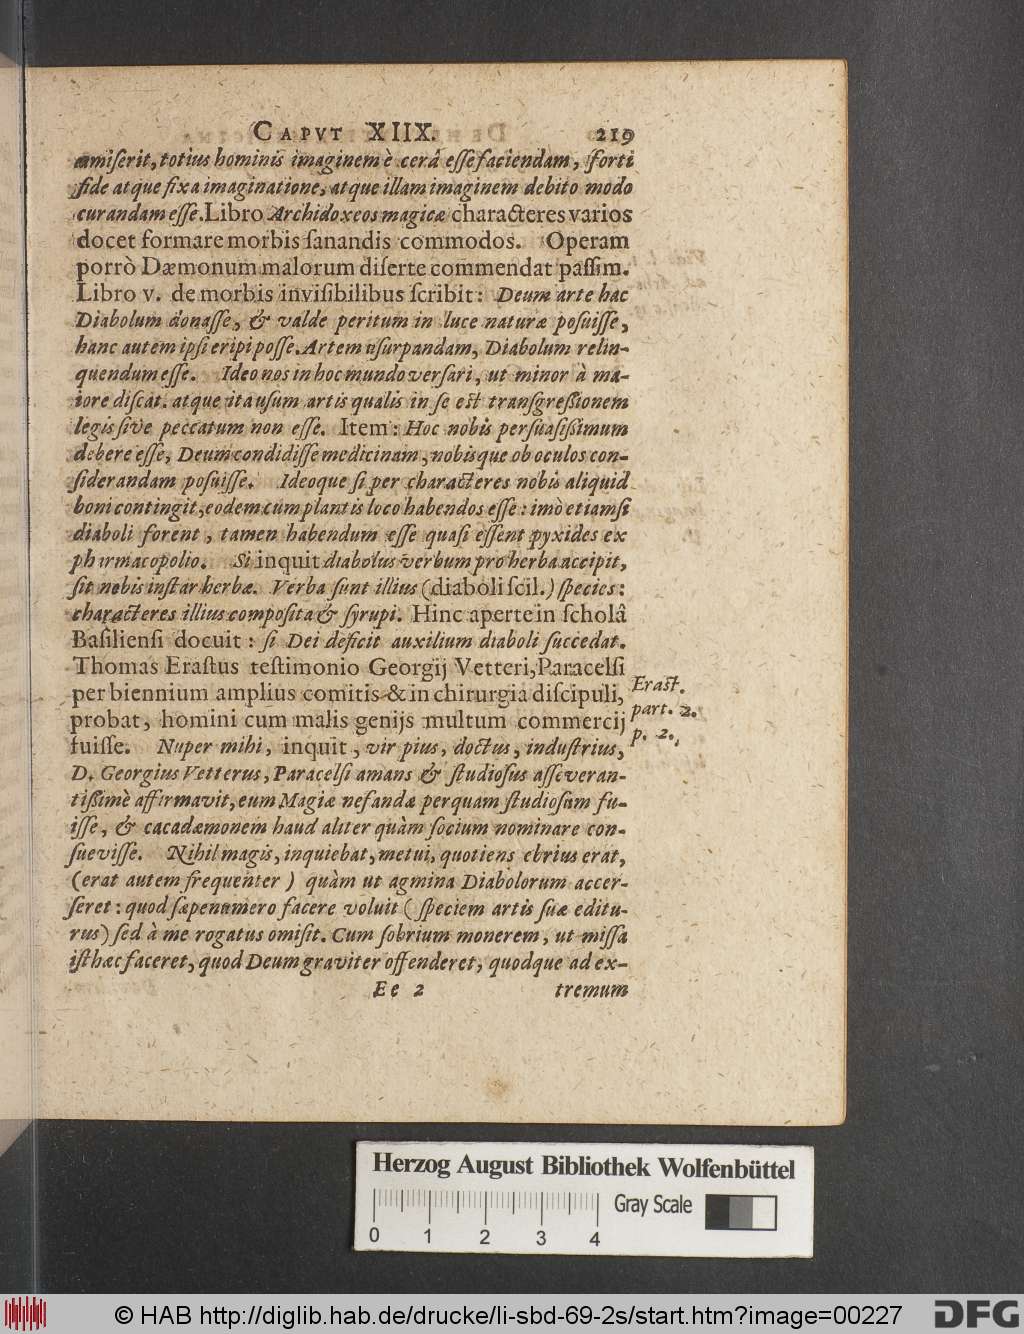 CAPVT XIIX. 219
amiſerit, totius hominis imaginem è cerâ eſſe faciendam, forti
fide atque fixa imaginatione, atque illam imaginem debito modo
curandam eſſe. Libro Archidoxeos magicæ characteres varios
docet formare morbis ſanandis commodos. Operam
porrò Dæmonum malorum diſerte commendat paſſim.
Libro v. de morbis inviſibilibus ſcribit: Deum arte hac
Diabolum donaſſe, & valde peritum in luce naturæ poſuiſſe,
hanc autem ipſi eripi poſſe. Artem uſurpandam, Diabolum relin-
quendum eſſe. Ideo nos in hoc mundo verſari, ut minor à ma-
iore diſcat. atque ita uſum artis qualis in ſe eſt tranſgreſſionem
legis ſive peccatum non eſſe. Item: Hoc nobis perſuaſiſſimum
debere eſſe, Deum condidiſſe medicinam, nobisque ob oculos con-
ſiderandam poſuiſſe. Ideoque ſi per characteres nobis aliquid
boni contingit, eodem cum plantis loco habendos eſſe: imò etiamſi
diaboli forent, tamen habendum eſſe quaſi eſſent pyxides ex
pharmacopolio. Si inquit diabolus verbum pro herba accipit,
ſit nobis inſtar herbæ. Verba ſunt illius (diaboli ſcil.) ſpecies:
characteres illius compoſita & ſyrupi. Hinc aperte in ſcholâ
Baſilienſi docuit: ſi Dei deficit auxilium diaboli ſuccedat.
Thomas Eraſtus teſtimonio Georgij Vetteri, Paracelſi
per biennium amplius comitis & in chirurgia diſcipuli,
probat, homini cum malis genijs multum commercij
fuiſſe. Nuper mihi, inquit, vir pius, doctus, induſtrius,
D. Georgius Vetterus, Paracelſi amans & ſtudioſus aſſeveran-
tiſſimè affirmavit, eum Magiæ nefandæ perquam ſtudioſum fu-
iſſe, & cacadæmonem haud aliter quàm ſocium nominare con-
ſueviſſe. Nihil magis, inquiebat, metui, quotiens ebrius erat,
(erat autem frequenter) quàm ut agmina Diabolorum accer-
ſeret: quod ſæpenumero facere voluit (ſpeciem artis ſuæ editu-
rus) ſed à me rogatus omiſit. Cum ſobrium monerem, ut miſſa
iſthæc faceret, quod Deum graviter offenderet, quodque ad ex-
Ee 2 tremum
Eraſt.
part. 2.
p. 2.
Herzog August Bibliothek Wolfenbüttel
Gray Scale
0 1 2 3 4
© HAB http://diglib.hab.de/drucke/li-sbd-69-2s/start.htm?image=00227
DFG